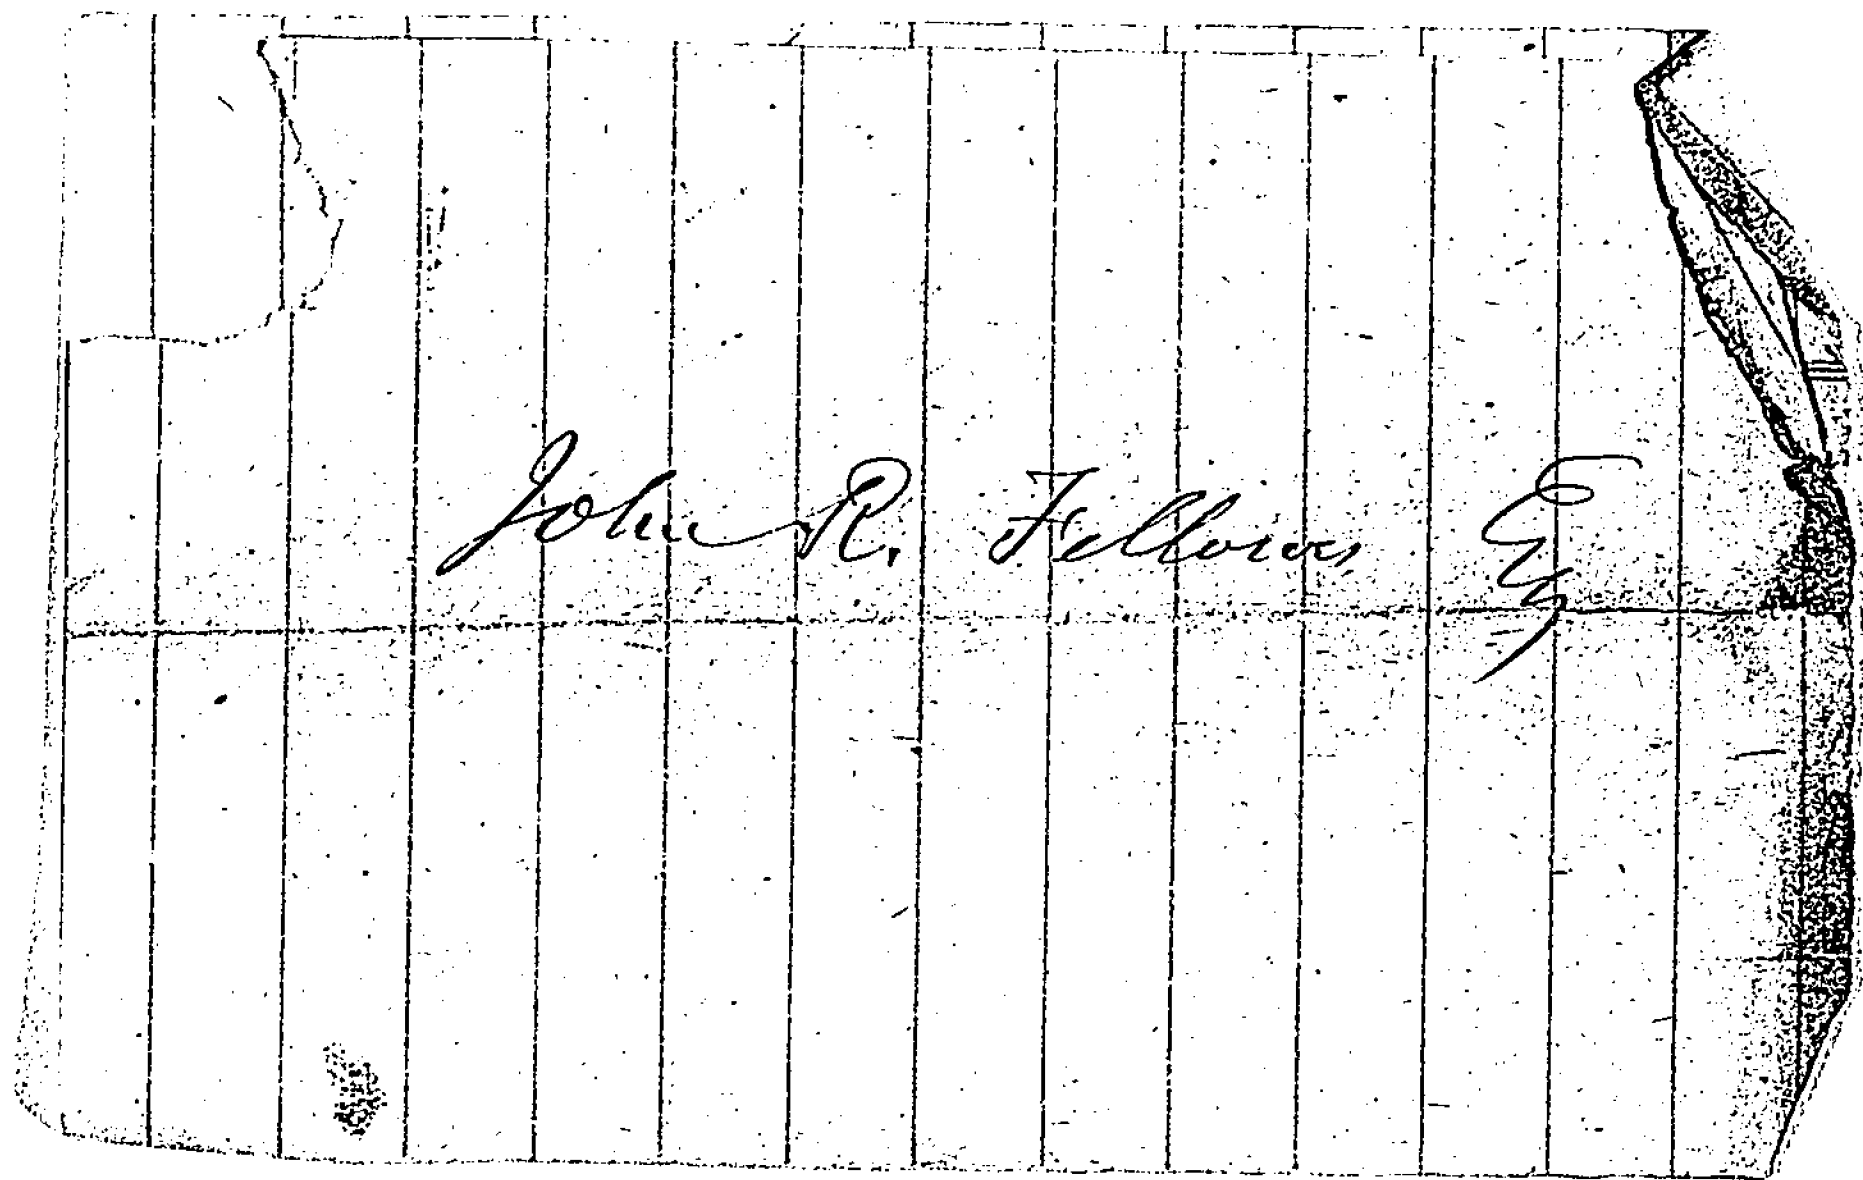 John R. Fellows Esq